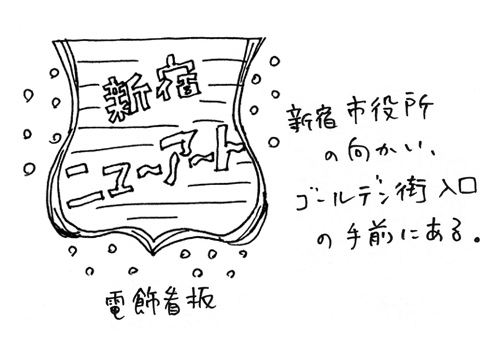 新宿
ニューアート
新宿市役所
の向かい、
ゴールデン街入口
の手前にある。
電飾看板